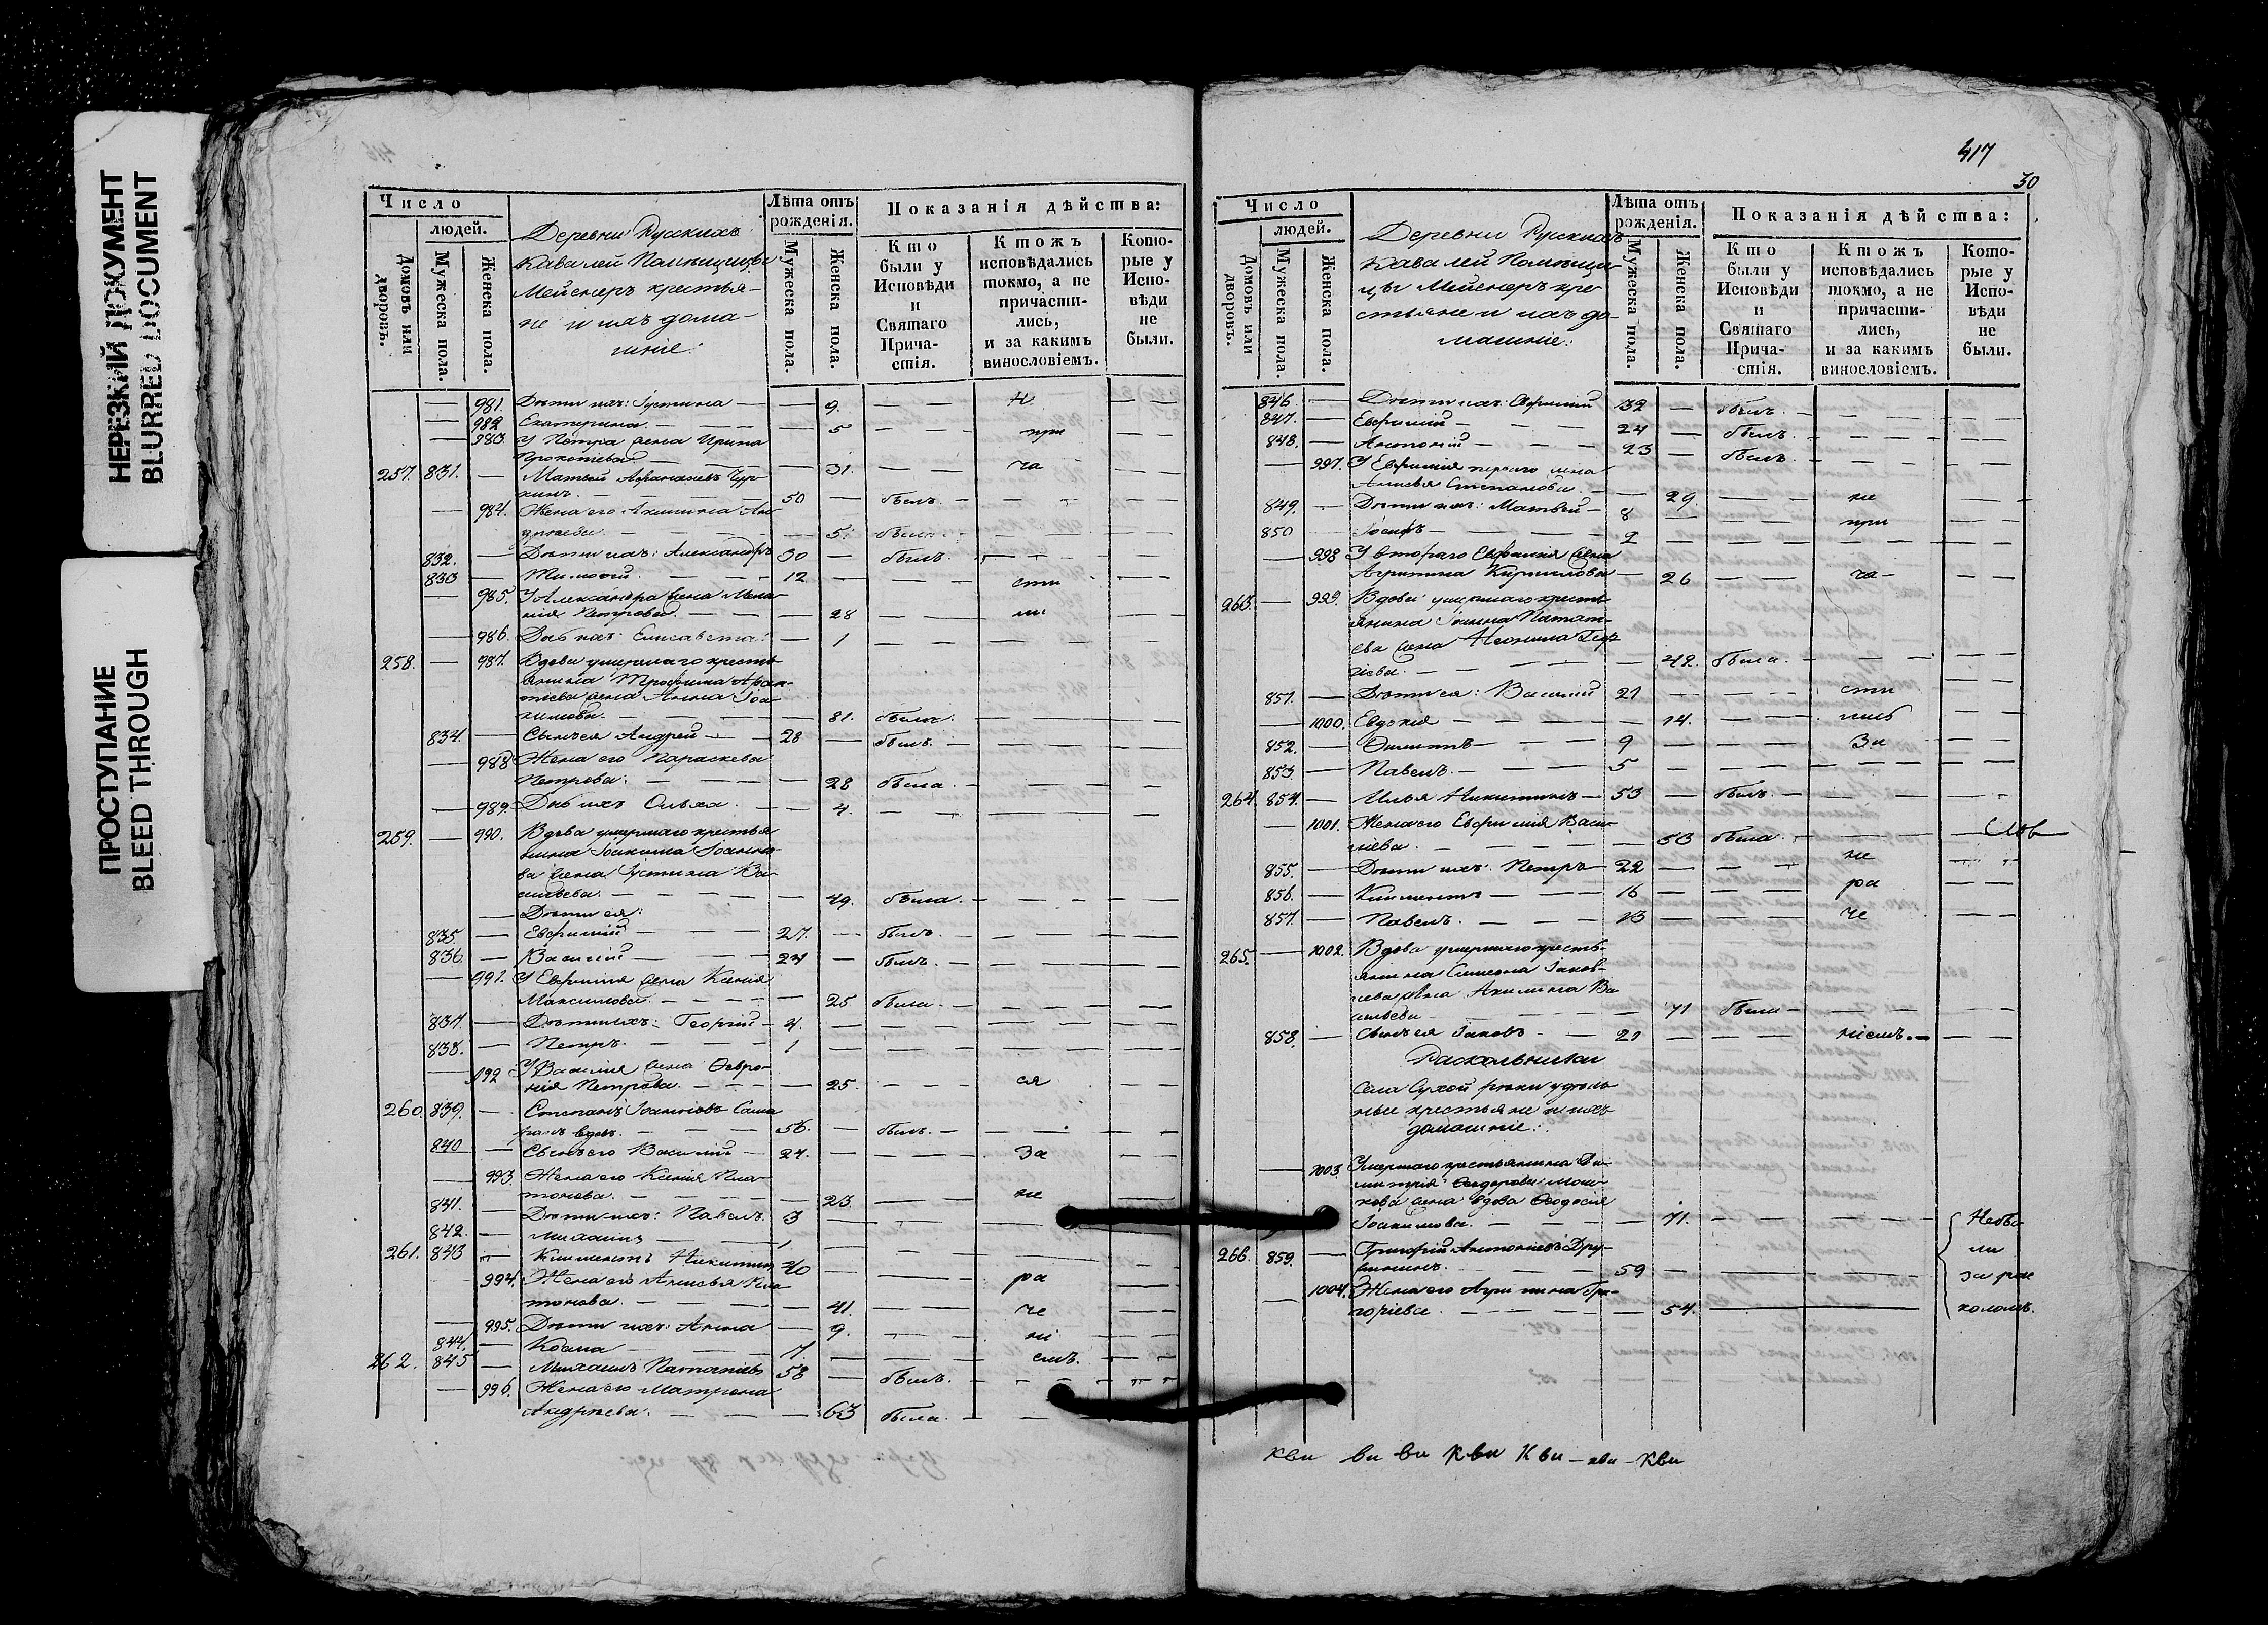 НЕРЕЗКИЙ ДОКУМЕНТ
BLURRED DOCUMENT
ПРОСТУПАНИЕ
BLEED THROUGH
Число
людей.
Домовъ или дворовъ.
Мужеска пола.
Женска пола.
Деревни Русскихъ
Кавалей Помѣщицы
Мейснеръ крестья-
не и ихъ дома-
шніе:
Лѣта отъ рожденія.
Мужеска пола.
Женска пола.
Показанія дѣйства:
Кто были у Исповѣди и Святаго Причастія.
Ктожъ исповѣдались токмо, а не причастились, и за какимъ винословіемъ.
Которые у Исповѣди не были.
— 981. Дѣти ихъ: Іустина — 9. — Н —
982. Екатерина. — 5 —
— 983 У Петра жена Ирина при
Прокопіева — 31. — ча
257. 831. — Матвей Афанасьевъ Чур-
кинъ. — 50 — былъ. —
— 984. Жена его Акилина Ан-
дреева. — 5. была. —
832. — Дѣти ихъ: Александръ 30 — былъ. —
833 — Тимофей. — 12 — сти
— 985. У Александра жена Мела-
нія Петрова. — 28 — ли
— 986. Дочь ихъ: Елисавета. — 1 —
258. — 987. Вдова умершаго кресть-
янина Трофима
жена Анна Іоа-
кимова. — 81. была. —
834. — Сынъ ея Андрей — 28 — былъ. —
— 988 Жена его Параскева
Петрова: — 28 была. —
— 989. Дочь ихъ Ольга. — 4. —
259. — 990. Вдова умершаго крестья-
нина Іоакима Іоанно-
ва жена Іустина Ва-
сильева. — 49. была. —
— Дѣти ея:
835. — Евфимій — 27. — былъ. —
836. — Василій — 24 — былъ. —
— 991. У Евфимія жена Ксенія
Максимова. — 25 была. —
837. — Дѣти ихъ: Георгій — 4. —
838. — Петръ. — 1 —
— 992 У Василія жена Февро-
нія Петрова. — 25. — ся —
260. 839. — Степанъ Іоанновъ
вдов. — 56. — былъ. —
840 — Сынъ его Василій — 24. — За —
— 993. Жена его Ксенія Пла-
тонова. — 23. — не
841. — Дѣти ихъ: Павелъ. 3 —
842. — Михаилъ — 1 —
261. 843 — Климентъ Никитинъ 40 —
994. Жена его Анисья Пла- ра
тонова. — 41. — че —
— 995. Дѣти ихъ: Анна — 9. — ні
844. — Козма — 7. —
262. 845 — Михаилъ Потаповъ 58 — былъ. емъ. —
— 996. Жена его Матрона
Андреева. — 63 была. —
417
30
Число
людей.
Домовъ или дворовъ.
Мужеска пола.
Женска пола.
Деревни Русскихъ
Кавалей Помѣщи-
цы Мейснеръ кре-
стьяне и ихъ до-
машніе:
Лѣта отъ рожденія.
Мужеска пола.
Женска пола.
Показанія дѣйства:
Кто были у Исповѣди и Святаго Причастія.
Ктожъ исповѣдались токмо, а не причастились, и за какимъ винословіемъ.
Которые у Исповѣди не были.
846. — Дѣти ихъ: Евфимій 32 — былъ. —
847. — Евфимій — 24 — былъ. —
848. — Антоній — 23 — былъ. —
— 997. У Евфимія перваго жена
Анисья Степанова. — 29. — не —
849. — Дѣти ихъ: Матвей — 8 — при —
850 Іосифъ — 2 —
— 998 У втораго Евфимія жена
Агрипина Кирилова — 26 — ча —
263. — 999. Вдова умершаго кресть-
янина Іоанна Потап-
ева жена Неонила Геор-
гіева. — 42. была. —
851. — Дѣти ея: Василій 21 — сти —
— 1000. Евдокія — 14. —
852. — Филиппъ — 9 — За —
853. — Павелъ. — 5 —
264 854. — Илья Никитинъ — 53 — былъ. —
— 1001. Жена его Евфимія Васи-
ліева. — 53 была. —
855. — Дѣти ихъ: Петръ — 22 — не —
856. — Климентъ — 16 — ра —
857. — Павелъ. — 13 — че —
265. — 1002. Вдова умершаго кресть-
янина Симеона Іаков-
лева жена Акилина Ва-
сильева — 71 была —
858. — Сынъ ея Іаковъ — 21 — ніемъ. —
Раскольники
Села Сухой рѣки удѣль-
ные крестьяне и ихъ
домашніе:
— 1003. Умершаго крестьянина Ди-
митрія Федорова
жена вдова Феодосія
Іоакимова. — 71. — Небы-
266. 859. — Григорій Антоніевъ ли
— 59 — за рас
— 1004. Жена его Агрипина Гри-
горіева. — 54. — коломъ.
кви ви ви кви кви — кви — кви